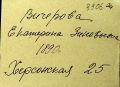 Вичерова
Екатерина Зиновьевна
1892.
Херсонская 25